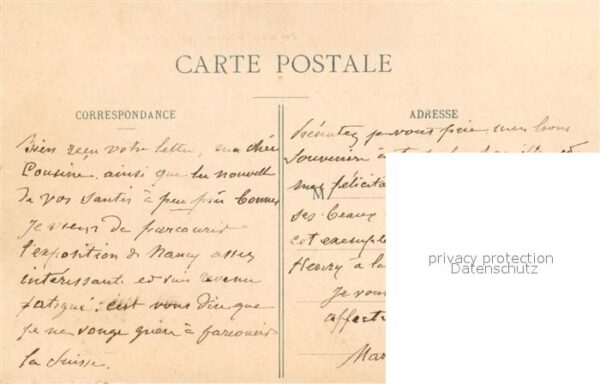 CARTE POSTALE
CORRESPONDANCE
Bien reçu votre lettre, ma chère
Cousine, ainsi que la nouvelle
de vos santés à peu près bonnes
Je viens de parcourir
l'exposition de Nancy assez
intéressante et suis revenu
fatigué : c'est vous dire que
je ne songe guère à parcourir
la Suisse.
ADRESSE
Présentez je vous prie mes bons
souvenirs à
M
mes félicita
ses beaux
cet exempl
Henry à la
Je vous
affect
Mar
privacy protection
Datenschutz